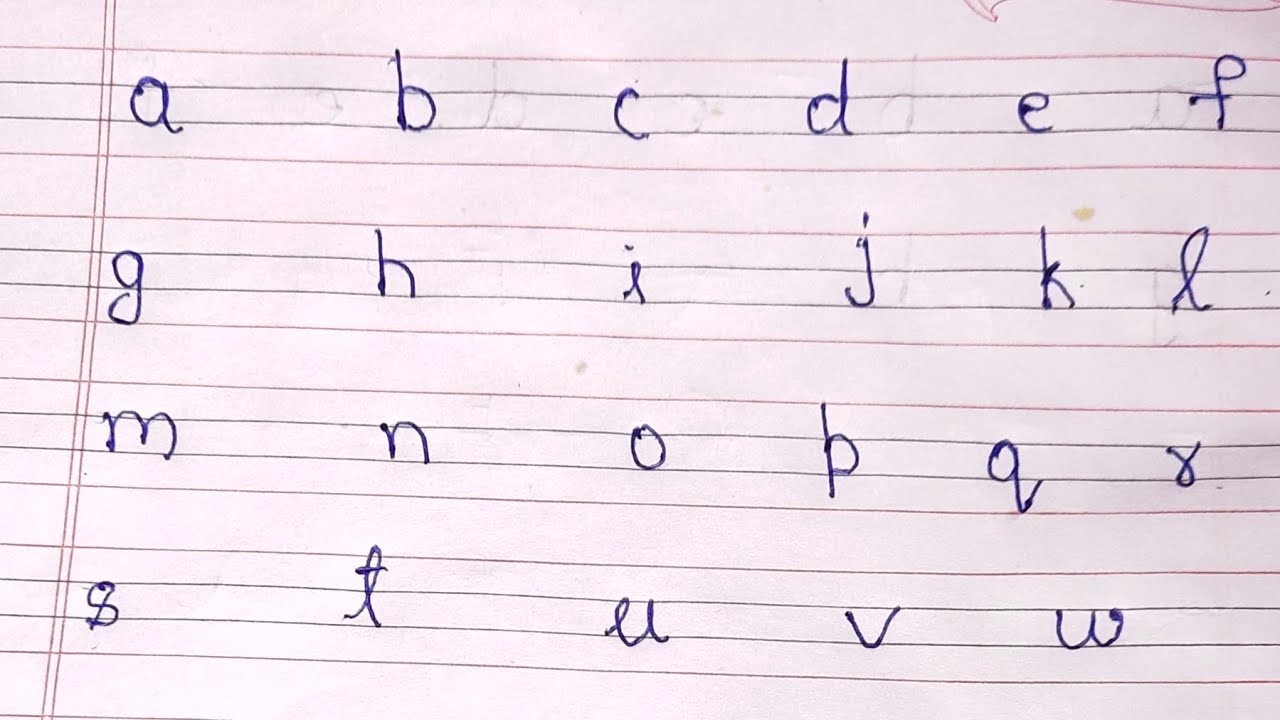 a b c d e f
g h i j k l
m n o p q r
s t u v w